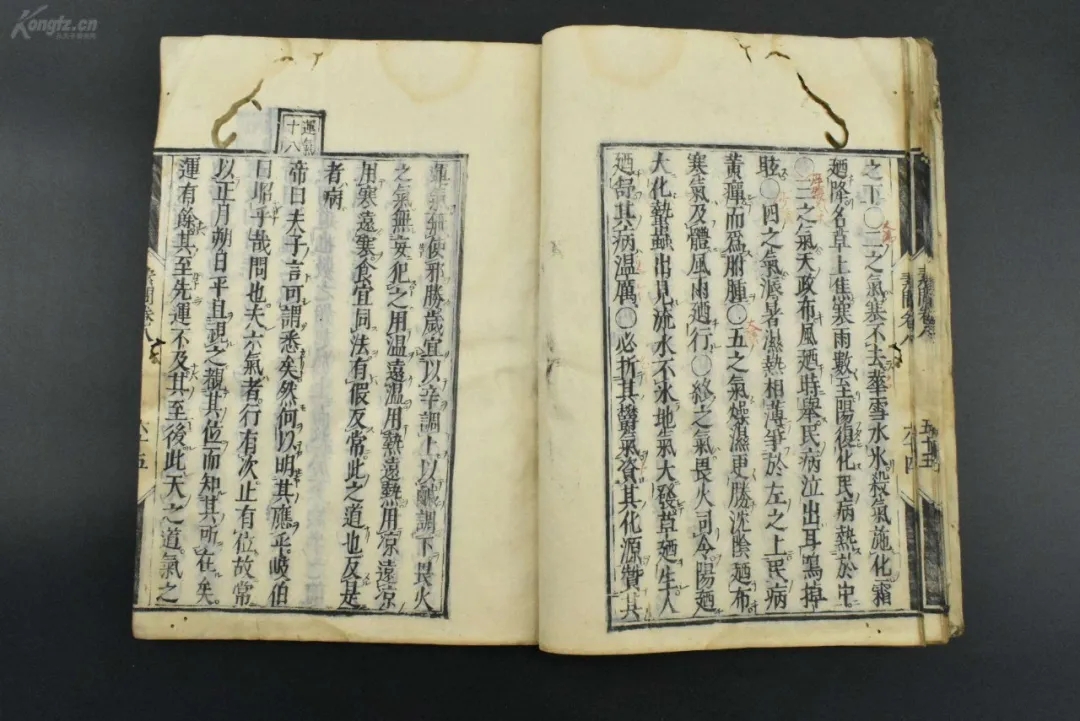 Kongfz.cn
之下〇二之氣寒不去華雪水氷殺氣施化霜
廼降名草上焦寒雨數至陽復化民病熱於中
〇三之氣天政布風廼時舉民病泣出耳鳴掉
眩〇四之氣溽暑濕熱相薄爭於左之上民病
黃癉而爲胕腫〇五之氣燥濕更勝沈陰廼布
寒氣及體風雨廼行〇終之氣畏火司令陽廼
大化蟄蟲出見流水不氷地氣大發草廼生人
廼舒其病温厲〇必折其鬱氣資其化源贊其
運氣無使邪勝歲宜以辛調上以鹹調下畏火
之氣無妄犯之用温遠温用熱遠熱用凉遠凉
用寒遠寒食宜同法有假反常此之道也反是
者病
運氣
十八
帝曰夫子言可謂悉矣然何以明其應乎岐伯
曰昭乎哉問也夫六氣者行有次止有位故常
以正月朔日平旦視之覩其位而知其所在矣
運有餘其至先運不及其至後此天之道氣之
素問卷八
六十五
素問卷八
六十四